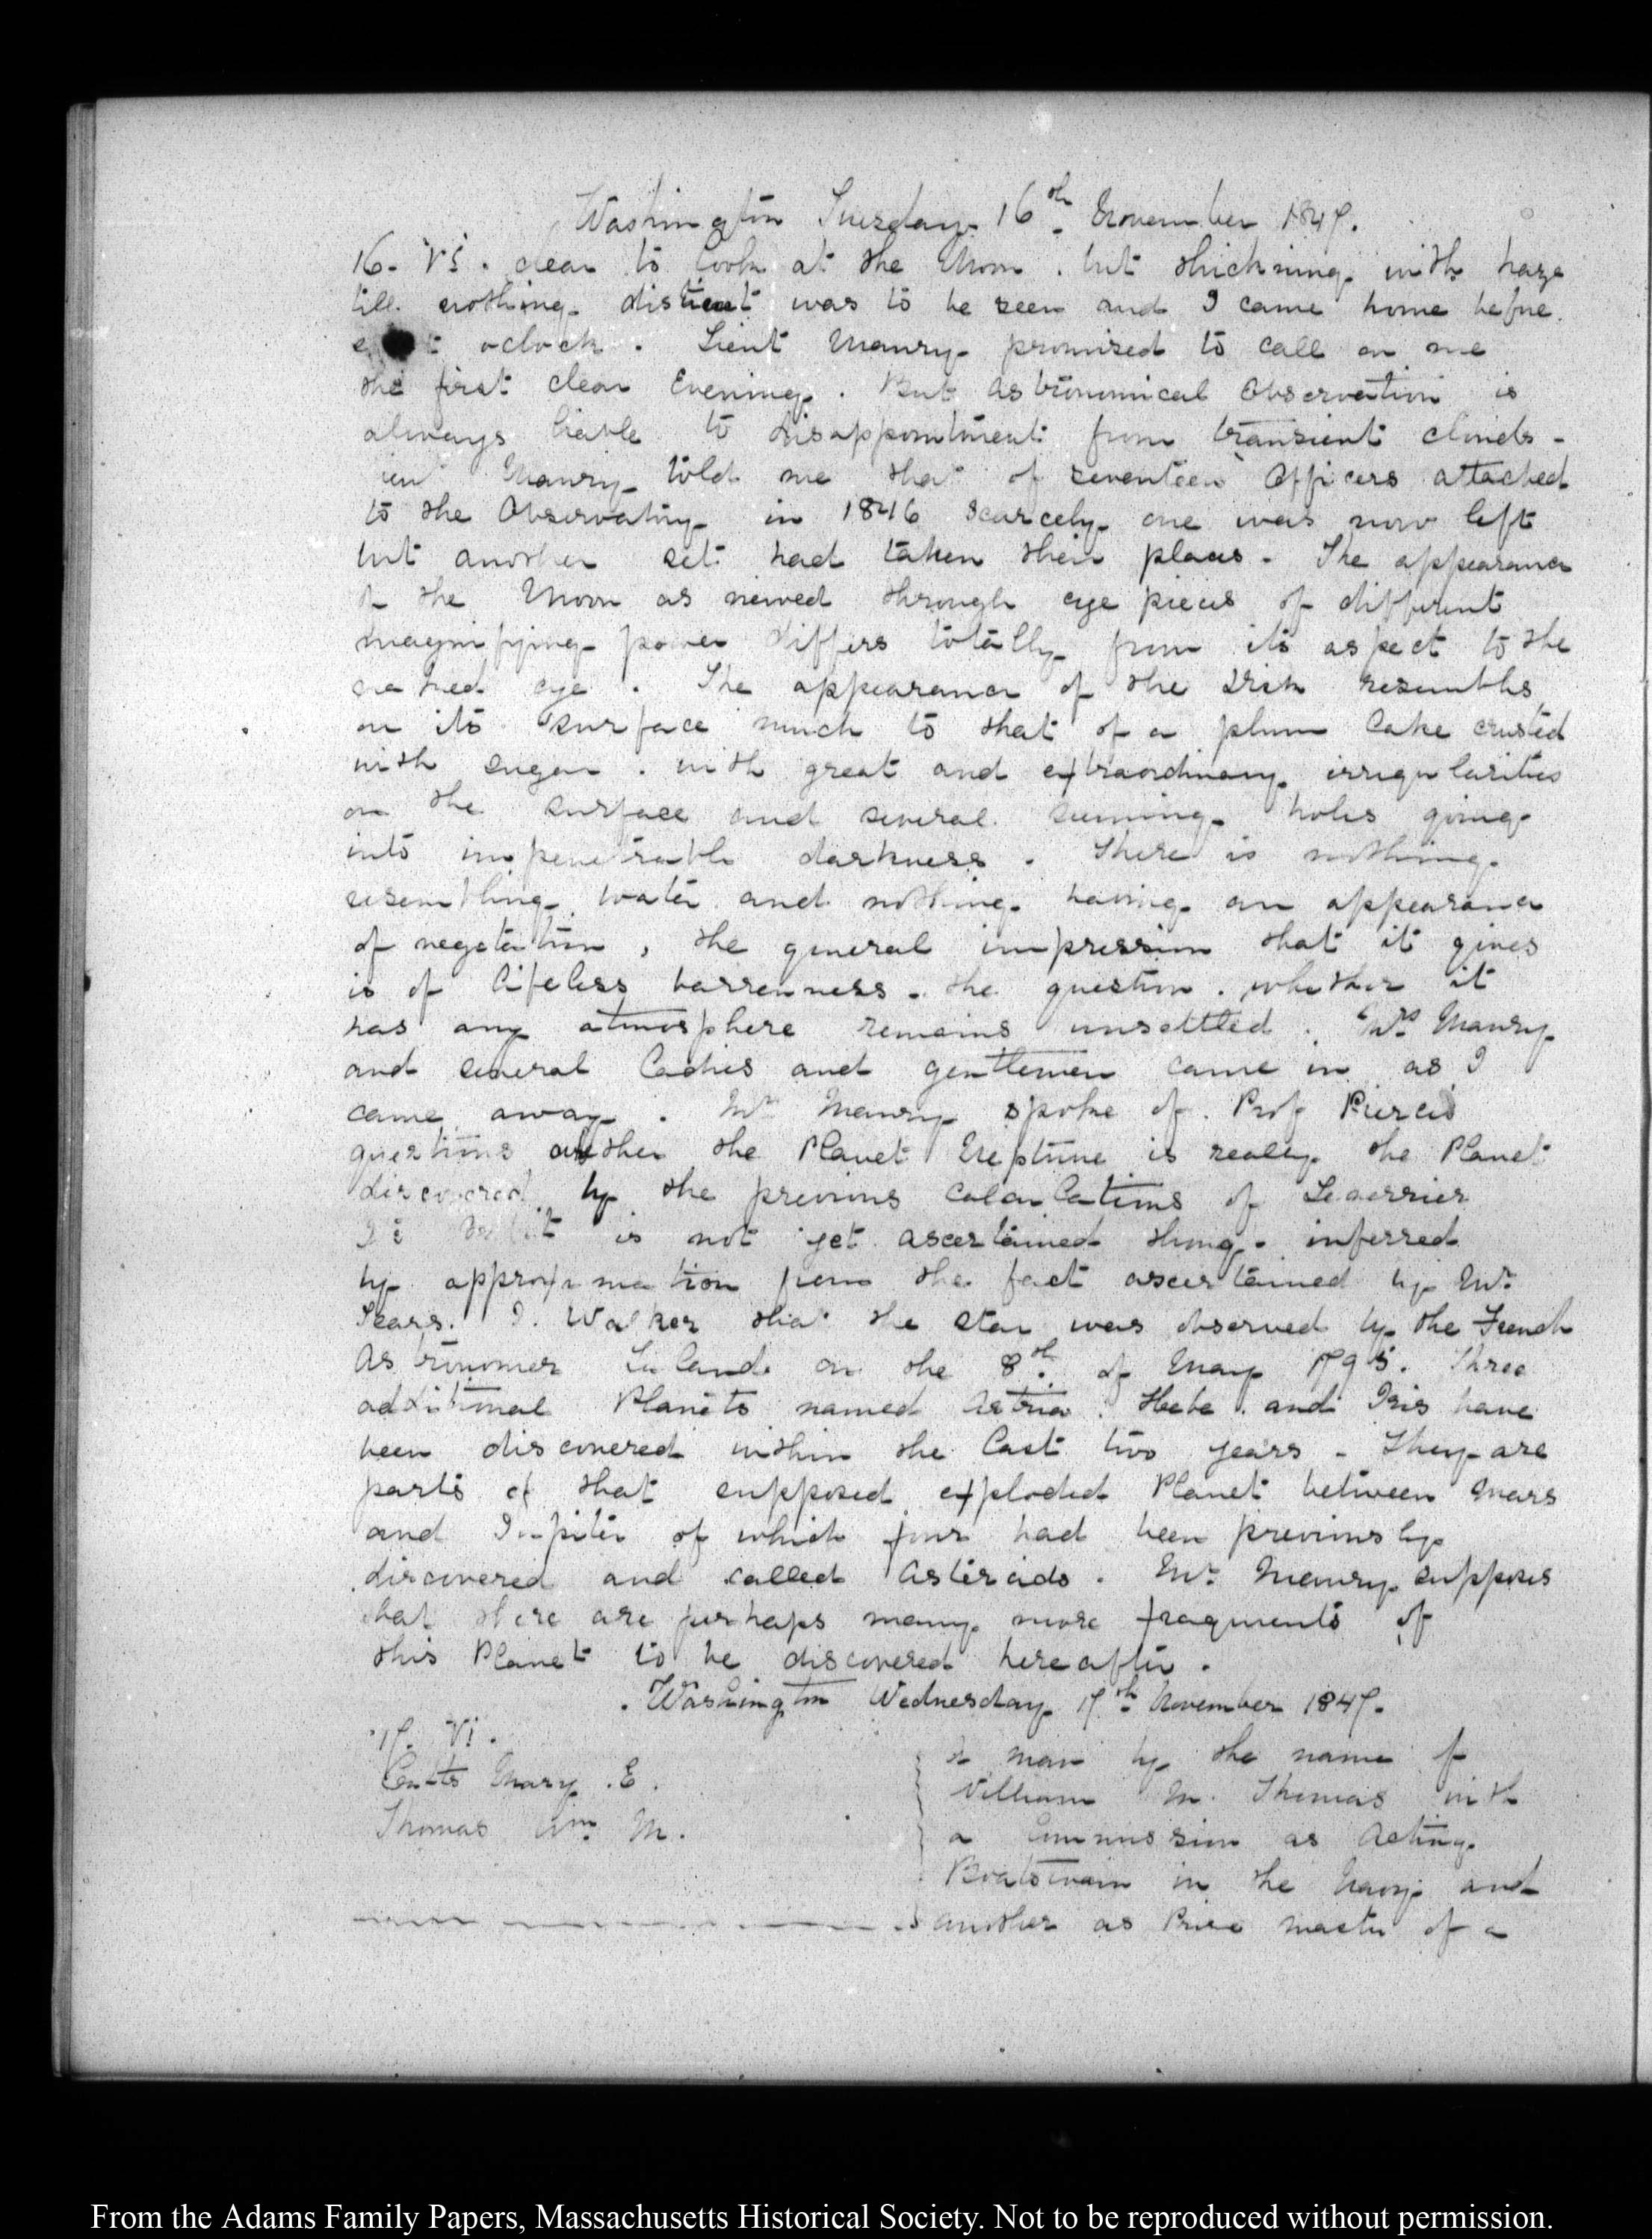 Washington Tuesday 16th November 1847.
16. VI. clear to look at the Moon. but thickning with haze
till nothing distinct was to be seen and I came home before
oclock. Lieut Maury promised to call on me
the first clear Evening. But astronomical Observation is
always liable to disappointment from transient clouds-
Maury told me that of seventeen Officers attached
to the Observatory in 1846 scarcely one was now left
but another set had taken their places. The appearance
of the Moon as viewed through eye pieces of different
magnifying power differs totally from its aspect to the
naked eye. The appearance of the Disk resembles
on its surface much to that of a plum Cake crusted
with sugar. with great and extraordinary irregularities
on the surface and several seeming holes going
into impenetrable darkness. There is nothing
resembling water and nothing having an appearance
of vegetation, the general impression that it gives
is of lifeless barrenness. the question. whether it
has any atmosphere remains unsettled. Mrs Maury
and several Ladies and gentlemen came in as I
came away. Mr Maury spoke of Prof Pierces
questions whether the Planet Neptune is really the Planet
discovered by the previous Calculations of Leverrier
Its Orbit is not yet ascertained though inferred
by approximation from the fact ascertained by Mr
Sears. Walker that the star was observed by the French
Astronomer Lalande on the 8th of May 1795. Three
additional Planets named Astria. Hebe. and Iris have
been discovered within the last two years - They are
parts of that supposed exploded Planet between Mars
and Jupiter of which four had been previously
discovered and called Asteroids. Mr Maury supposes
that there are perhaps many more fragments of
this Planet to be discovered hereafter.
Washington Wednesday 17th November 1847.
17. VI.
Cutts Mary. E.
Thomas Wm M.
A man by the name of
William M. Thomas with
a Commission as Acting
Boatswain in the Navy and
another as Prize master of a
From the Adams Family Papers, Massachusetts Historical Society. Not to be reproduced without permission.